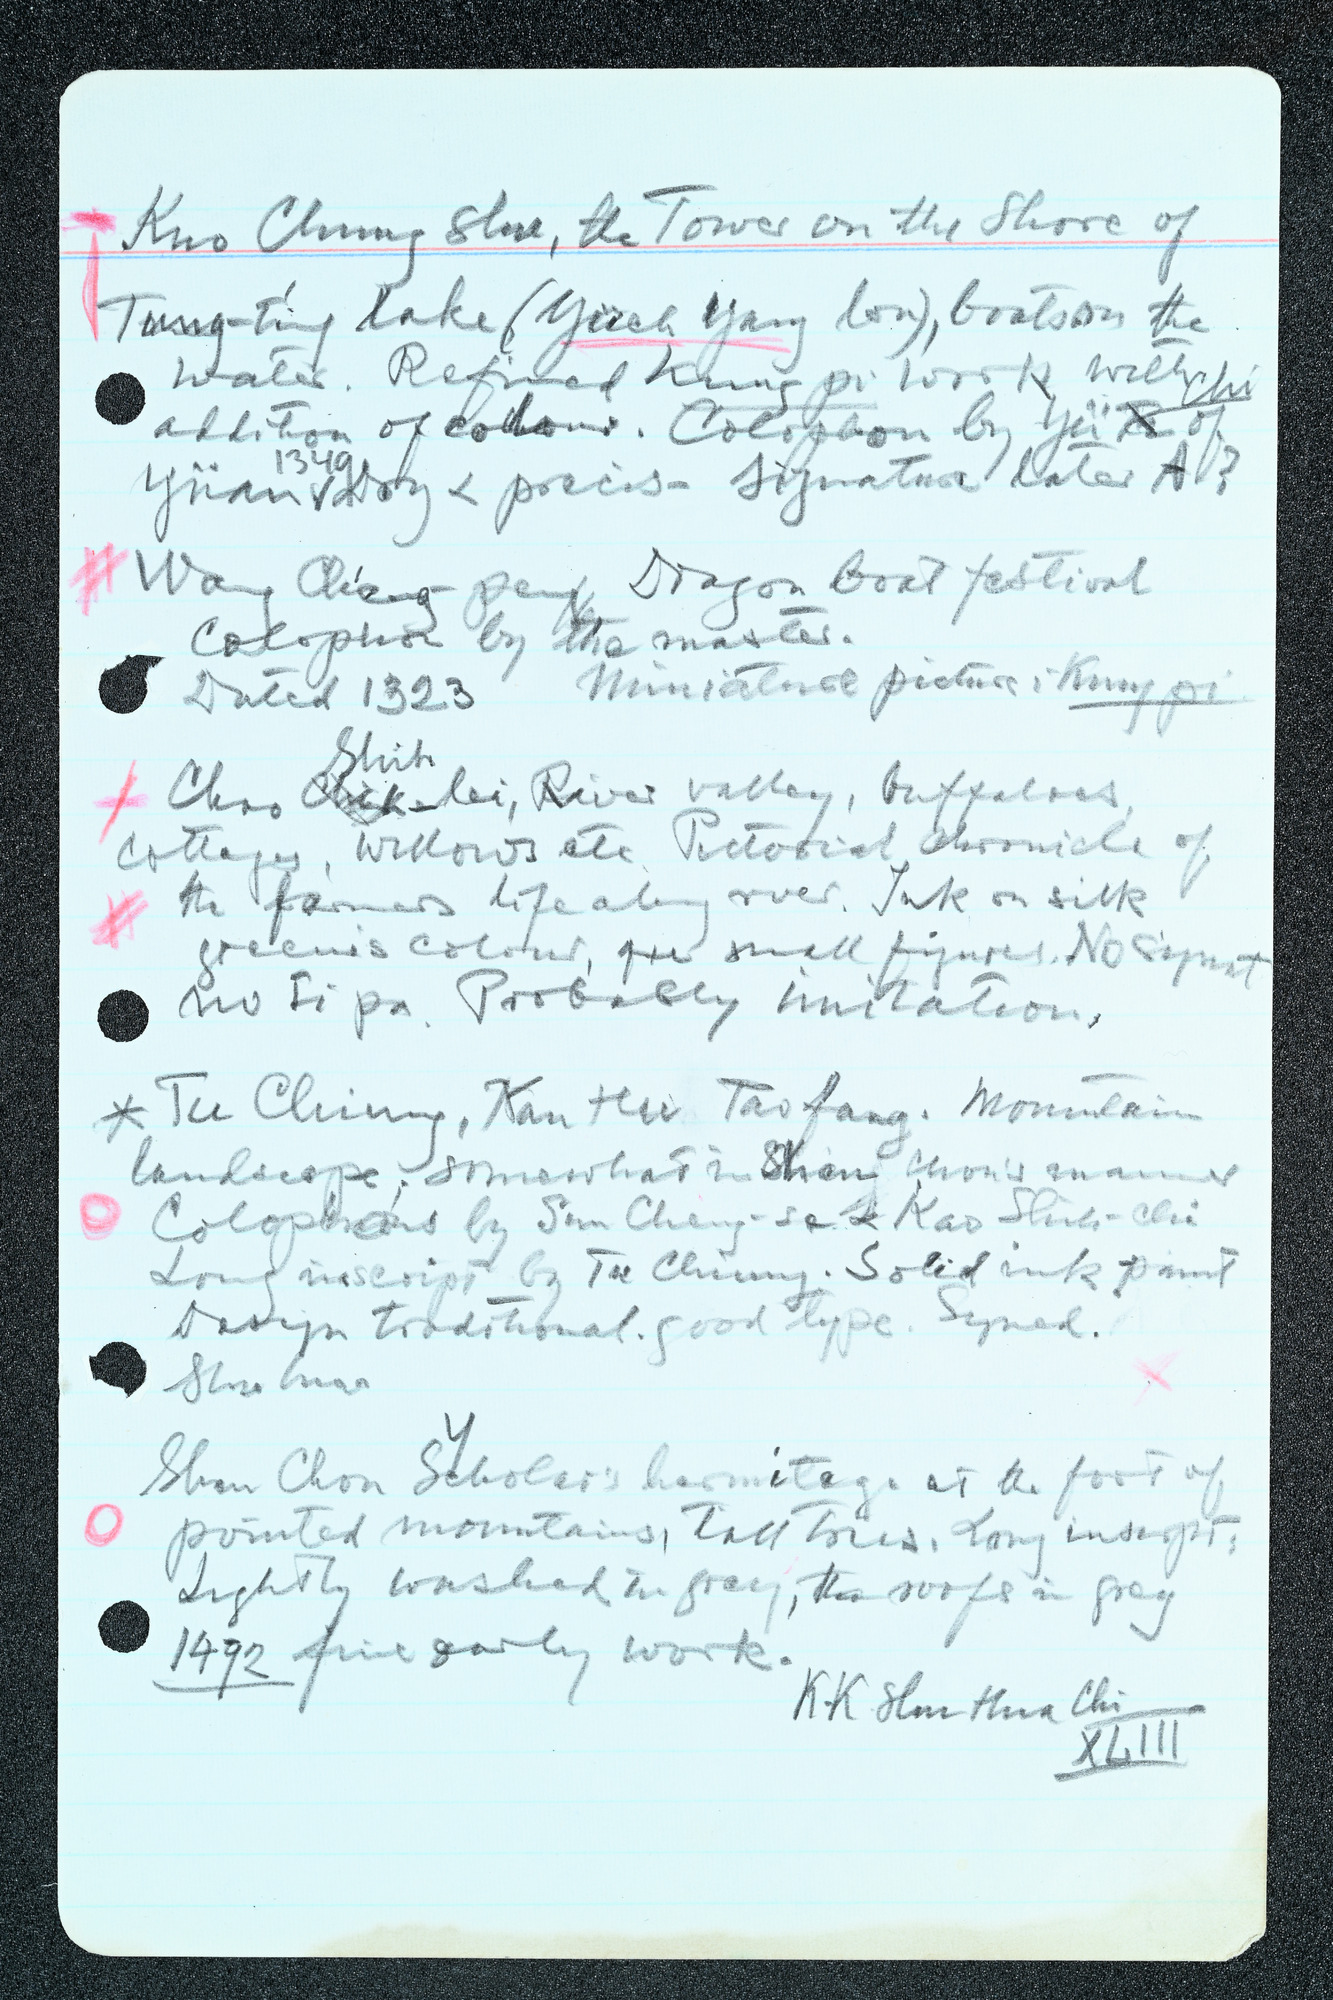 Kuo Chung Shu, the Tower on the Shore of
Tung-t'ing Lake (Yüeh Yang lou), boats on the
water. Refined Kung pi work with
addition of colour. Colophon by Yü chi of
Yüan 1349 Very & precis- Signature later A?
# Wang Cheng peng, Dragon boat festival
Colophon by the master.
Dated 1323 Miniature picture: Kung pi
Shih
+ Chao lei, River valley, buffaloes,
cottages, willows etc. Pictorial chronicle of
the farmers life along river. Ink on silk
# greenis colour, small figures. No signat
no ti pa. Probably imitation.
* Tu Chiung, Kan Hsi Tao fang. Mountain
landscape; somewhat in Shen Chou's manner
Colophons by Sun Cheng-se & Kao Shih-chi
Long inscript by Tu Chiung. Solid ink paint
Design traditional. good type. Signed.
Shu hua
Y
Shen Chou Scholar's hermitage at the foot of
pointed mountains, tall trees. Long inscript:
Lightly washed in grey, the roofs in grey
1492 fine early work.
K-K Shu Hua Chi
XLIII